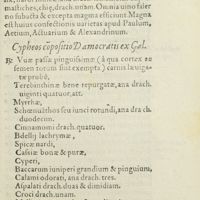 maſtiches, chię, drach. unam. Omnia uino ſuſſer
no ſubacta & excepta magma efficiunt. Magna
eſt huius confectionis uarietas apud Paulum,
Aetium, Actuarium & Alexandrinum.
Cypheos cõpoſitio Damocratis ex Gal.
℞ Vuæ paſſæ pinguiſſimæ (à qua cortex ac
ſemen totum ſint exempta) carnis læuiga-
tæ probè,
Terebinthinæ benè repurgatæ, ana drach.
uiginti quatuor, att.
Myrrhæ,
Schœnuãthos ſeu iunci rotundi, ana drach.
duodecim.
Cinnamomi drach. quatuor.
Bdellij lachrymæ,
Spicæ nardi,
Caſsiæ bonæ & puræ,
Cyperi,
Baccarum iuniperi grandium & pinguium,
Calami odorati, ana drach. tres.
Aſpalati drach. duas & dimidiam.
Croci drach. unam.